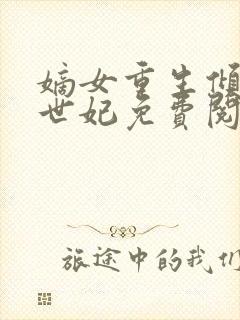 嫡女重生倾
世妃免費閱
旅途中的我们